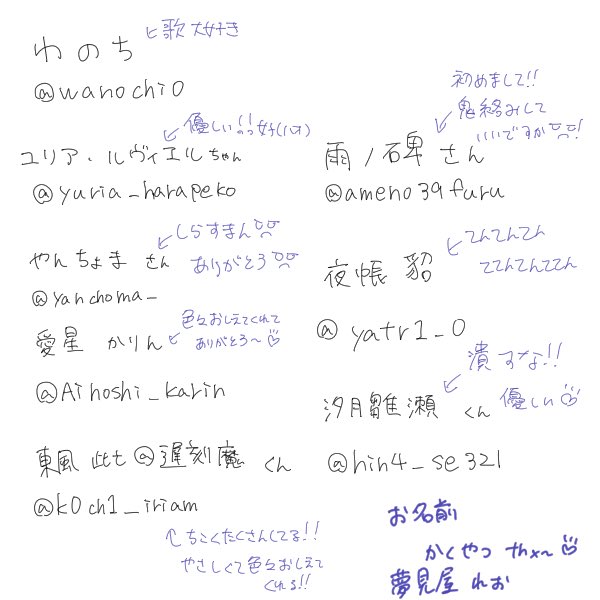 わのち
←歌大好き
@wanochi0
優しい!!
ユリア・ルヴィエルちゃん
@yuria_harapeko
やんちょまさん
←しらすまん
ありがとう
@yanchoma_
愛星 かりん
←色々おしえてくれて
ありがとう〜
@Aihoshi_karin
東風 此t@遅刻魔 くん
@k0ch1_iriam
↑ちこくたくさんしてる!!
やさしくて色々おしえて
くれる!!
初めまして!!
鬼絡みして
いいですか
雨ノ碑さん
@ameno39furu
←てんてんてん
ててんてんててん
夜帳 貂
@yatr1_0
潰すな!!
優しい
汐月雛瀬 くん
@hin4_se321
お名前
かくやつ thx〜
夢見屋 れお